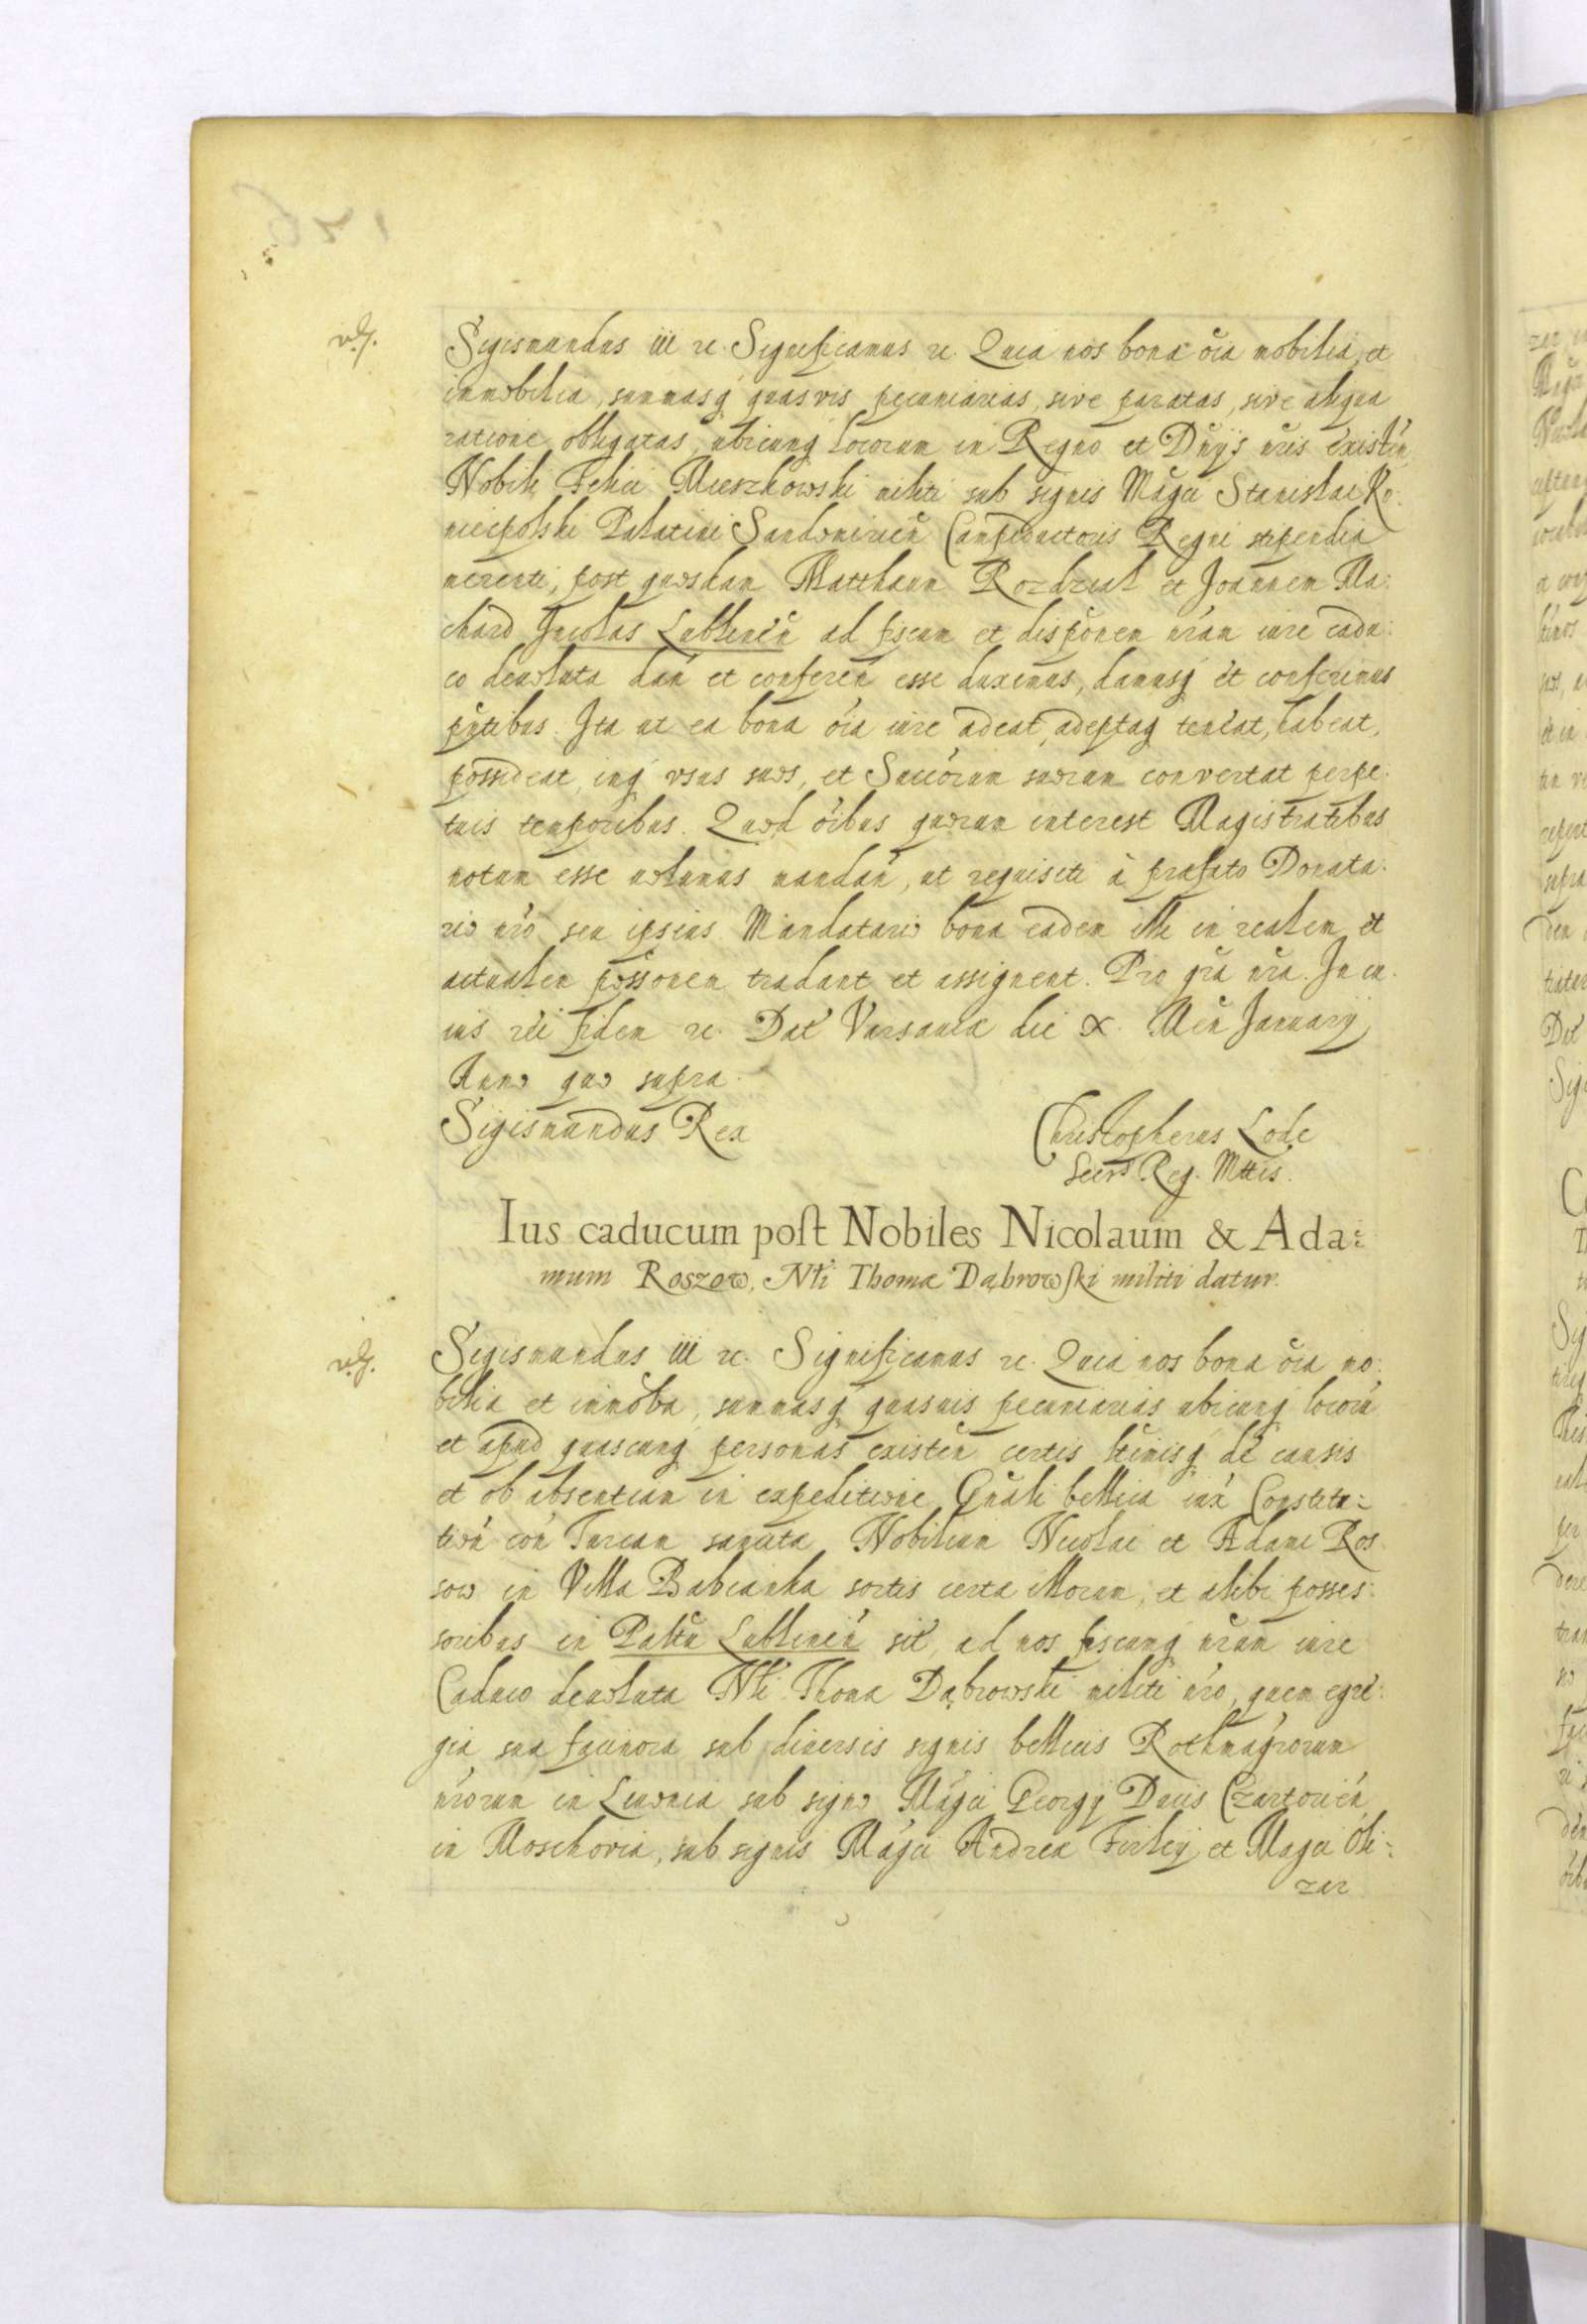 Sigismundus III rc. Significamus rc. Quia nos bona o͠ia mobilia, et
immobilia, summasq́ quasvis pecuniarias, sive paratas, sive aliqua
ratione obligatas, ubicunq́ locorum in Regno et Dn̄ijs nr̄is existeń,
Nobili Felici Mieszkowski militi sub signis Mag̃ci Stanislai Ko:
niecpolski Palatini Sandomirień Campiductoris Regni stipendia
merenti, post quosdam Matthaeum Rozdzial et Joannem Ma:
chard Incolas Lublineń ad fiscum et disponem nr̃am iure cadu:
co devoluta dań et confereń esse duximus, damusq́ et conferimus
pn̄tibus. Ita ut ea bona o͠ia iure adeat, adeptaq́ teneat, habeat,
possideat, inq́ usus suos, et Succõrum suorum convertat perpe:
tuis temporibus. Quod o͠ibus quorum interest Magistratibus
notum esse volumus mandań, ut requisiti à praefato Donata:
rio nr̃o seu ipsius Mandatario bona eadem illi in realem et
actualem possonem tradant et assignent. Pro gr̃a nr̃a. In cu:
ius rei fidem rc. Dat Varsaviae die X. Meñ Januarij
Anno quo supra.
Sigismundus Rex
Christopherus Lode
Secrs Reg. Mttis.
Ius caducum post Nobiles Nicolaum & Ada:
mum Roszow, Nli Thomae Dąbrowski militi datur.
Sigismundus III rc. Significamus rc. Quia nos bona o͠ia mo:
bilia et immoba, summasq́ quasuis pecuniarias ubicunq́ locorũ
et apud quascunq́ personas existeñ certis ltimisq́ de causis
et ob absentiam in expeditione Gnãli bellica iuxá Constitu:
tioń coń Turcam sancita Nobilium Nicolai et Adami Ros
sow in Villa Babianka sortis certae illorum, et alibi posses:
soribus in Paltu Lublineń sit, ad nos fiscumq́ nr̃um iure
Caduco devoluta Nli Thomae Dąbrowski militi nr̃o, quem egre:
gia sua facinora sub diuersis signis bellicis Rothmagr̃orum
nr̃orum in Livonia sub signo Mag̃ci Georgij Ducis Czartorień
in Moschovia, sub signis Mag̃ci Andreae Firleij et Magci Oli:
zar